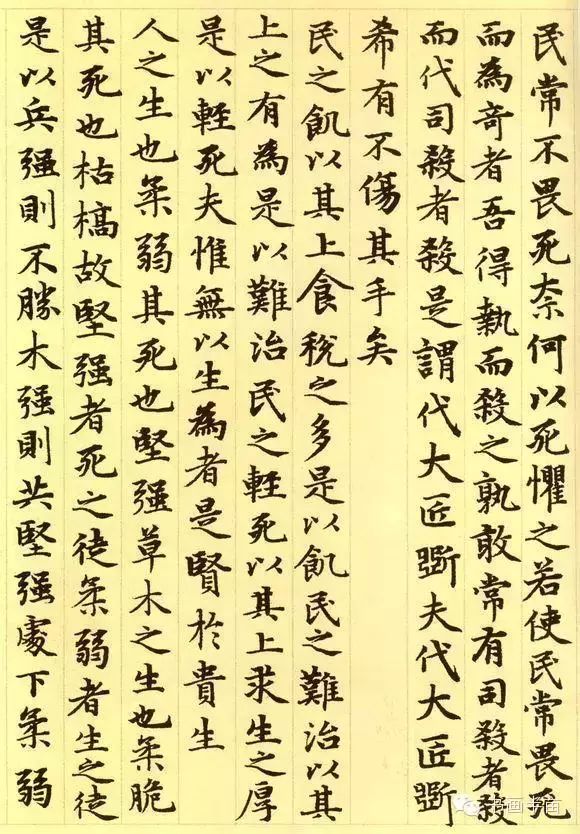 民常不畏死奈何以死懼之若使民常畏死
而為奇者吾得執而殺之孰敢常有司殺者殺
而代司殺者殺是謂代大匠斲夫代大匠斲
希有不傷其手矣
民之飢以其上食稅之多是以飢民之難治以其
上之有為是以難治民之輕死以其上求生之厚
是以輕死夫惟無以生為者是賢於貴生
人之生也柔弱其死也堅强草木之生也柔脆
其死也枯槁故堅强者死之徒柔弱者生之徒
是以兵强則不勝木强則共堅强處下柔弱
书画书画